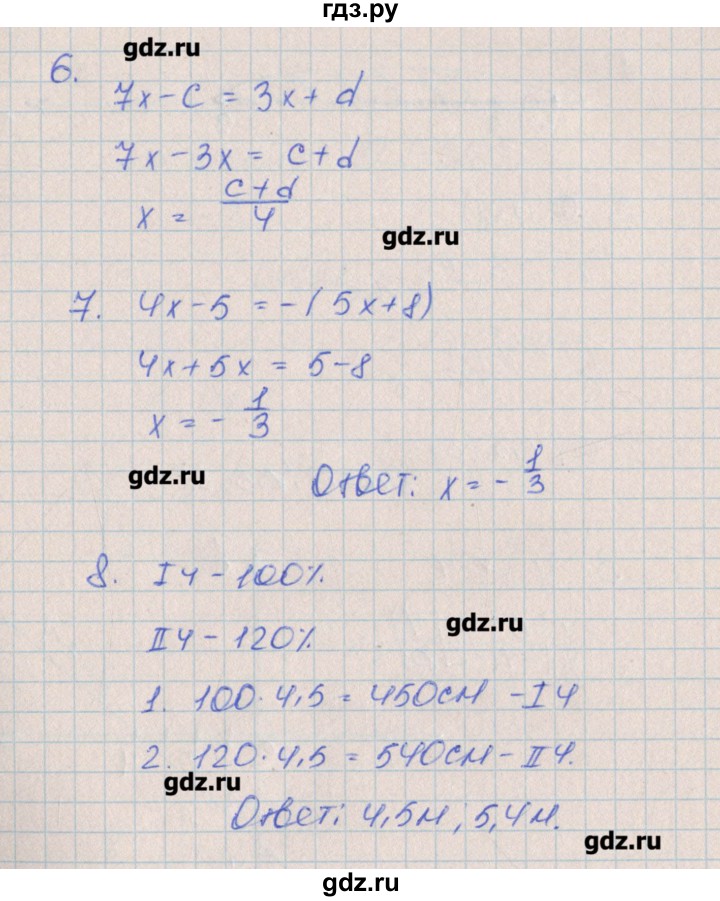 гдз.ру
gdz.ru
6.
7x - c = 3x + d
7x - 3x = c + d
x = (c+d)/4
gdz.ru
7. 4x - 5 = -(5x + 8)
4x + 5x = 5 - 8
x = - 1/3
gdz.ru
Ответ: x = - 1/3
8. I ч - 100%
gdz.ru
II ч - 120%
1. 100 · 4,5 = 450см - I ч
2. 120 · 4,5 = 540см - II ч.
gdz.ru
Ответ: 4,5м; 5,4м.
gdz.ru
gdz.ru